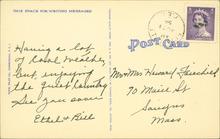 THIS SPACE FOR WRITING MESSAGES
POST CARD
Having a lot
of cool weather
but enjoying
the quiet country
See you soon
Ethel & Bill
Mr & Mrs Henry Fairchild
70 Main St
Saugus
Mass.